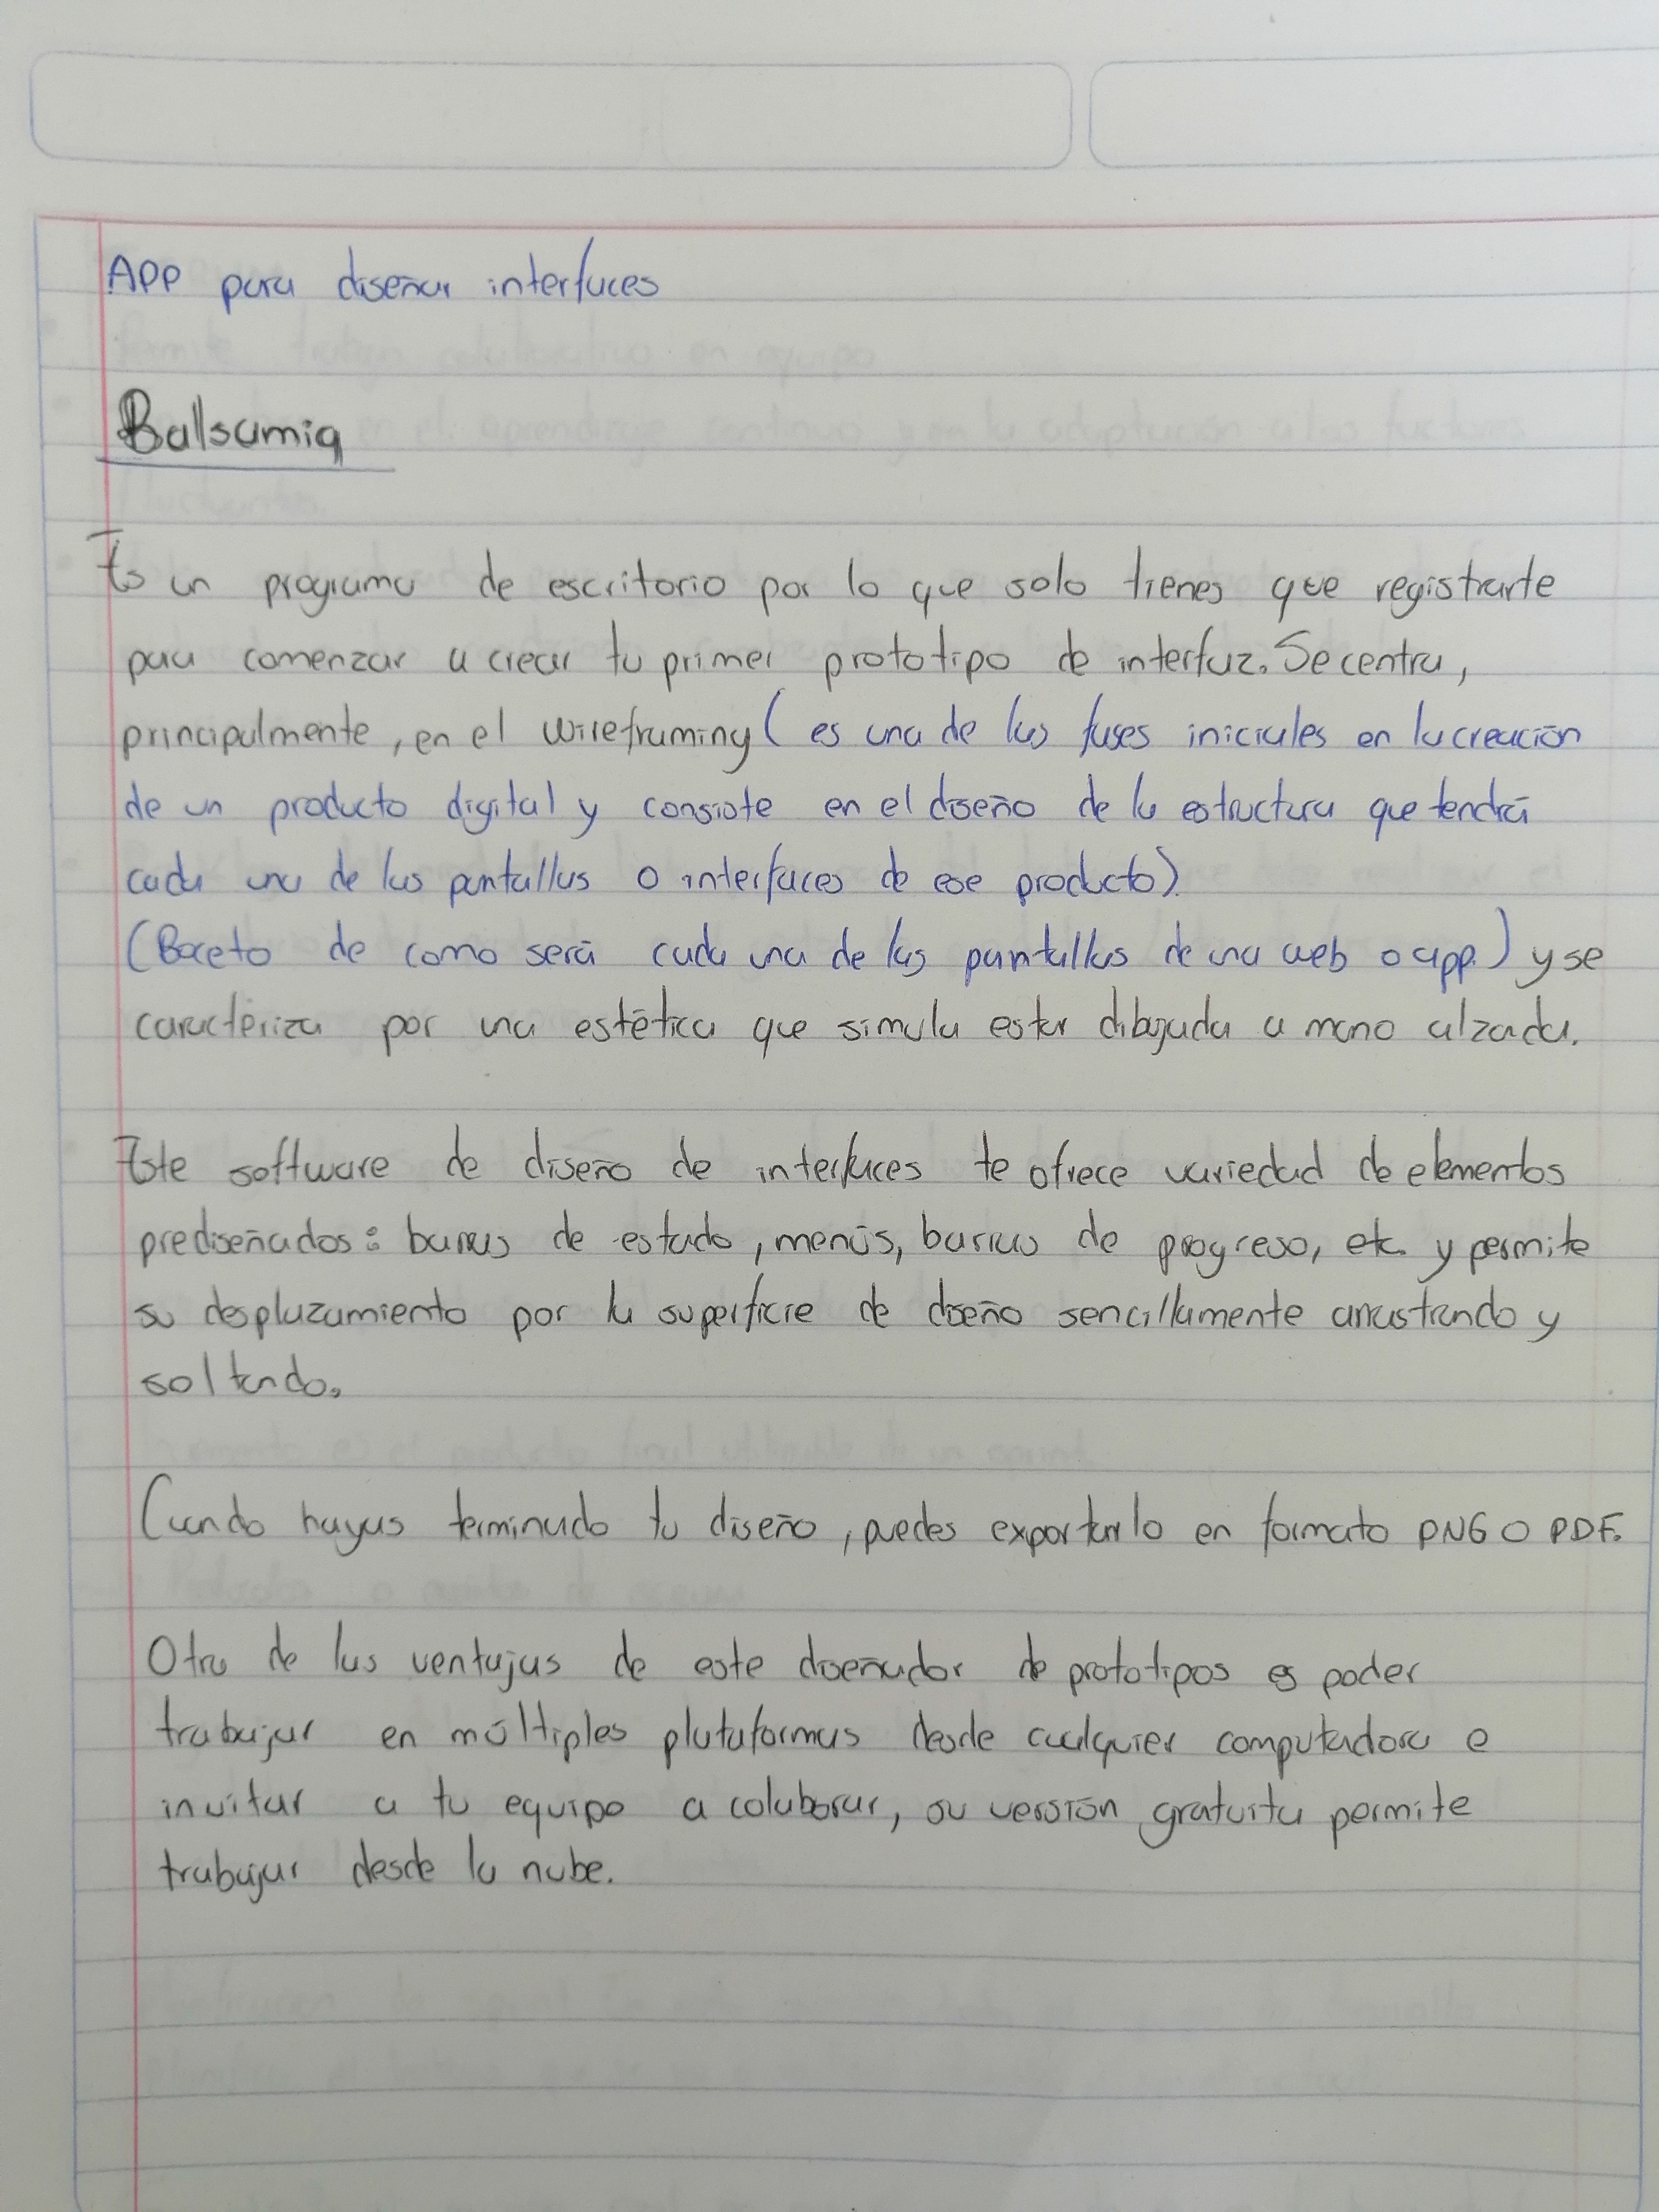 APP para diseñar interfaces
Balsamiq
Es un programa de escritorio por lo que solo tienes que registrarte
para comenzar a crear tu primer prototipo de interfaz. Se centra,
principalmente, en el wireframing ( es una de las fases iniciales en la creación
de un producto digital y consiste en el diseño de la estructura que tendrá
cada una de las pantallas o interfaces de ese producto).
(Boceto de como será cada una de las pantallas de una web o app.) y se
caractériza por una estética que simula estar dibujada a mano alzada.
Este software de diseño de interfaces te ofrece variedad de elementos
prediseñados: barras de estado, menús, barras de progreso, etc. y permite
su desplazamiento por la superficie de diseño sencillamente arrastrando y
soltando.
Cuando hayas terminado tu diseño, puedes exportarlo en formato PNG O PDF.
Otra de las ventajas de este diseñador de prototipos es poder
trabajar en múltiples plataformas desde cualquier computadora e
invitar a tu equipo a colaborar, su versión gratuita permite
trabajar desde la nube.